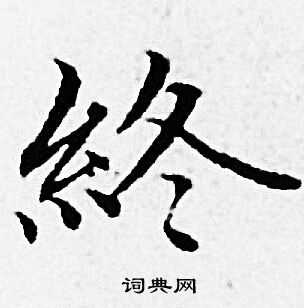 終
词典网